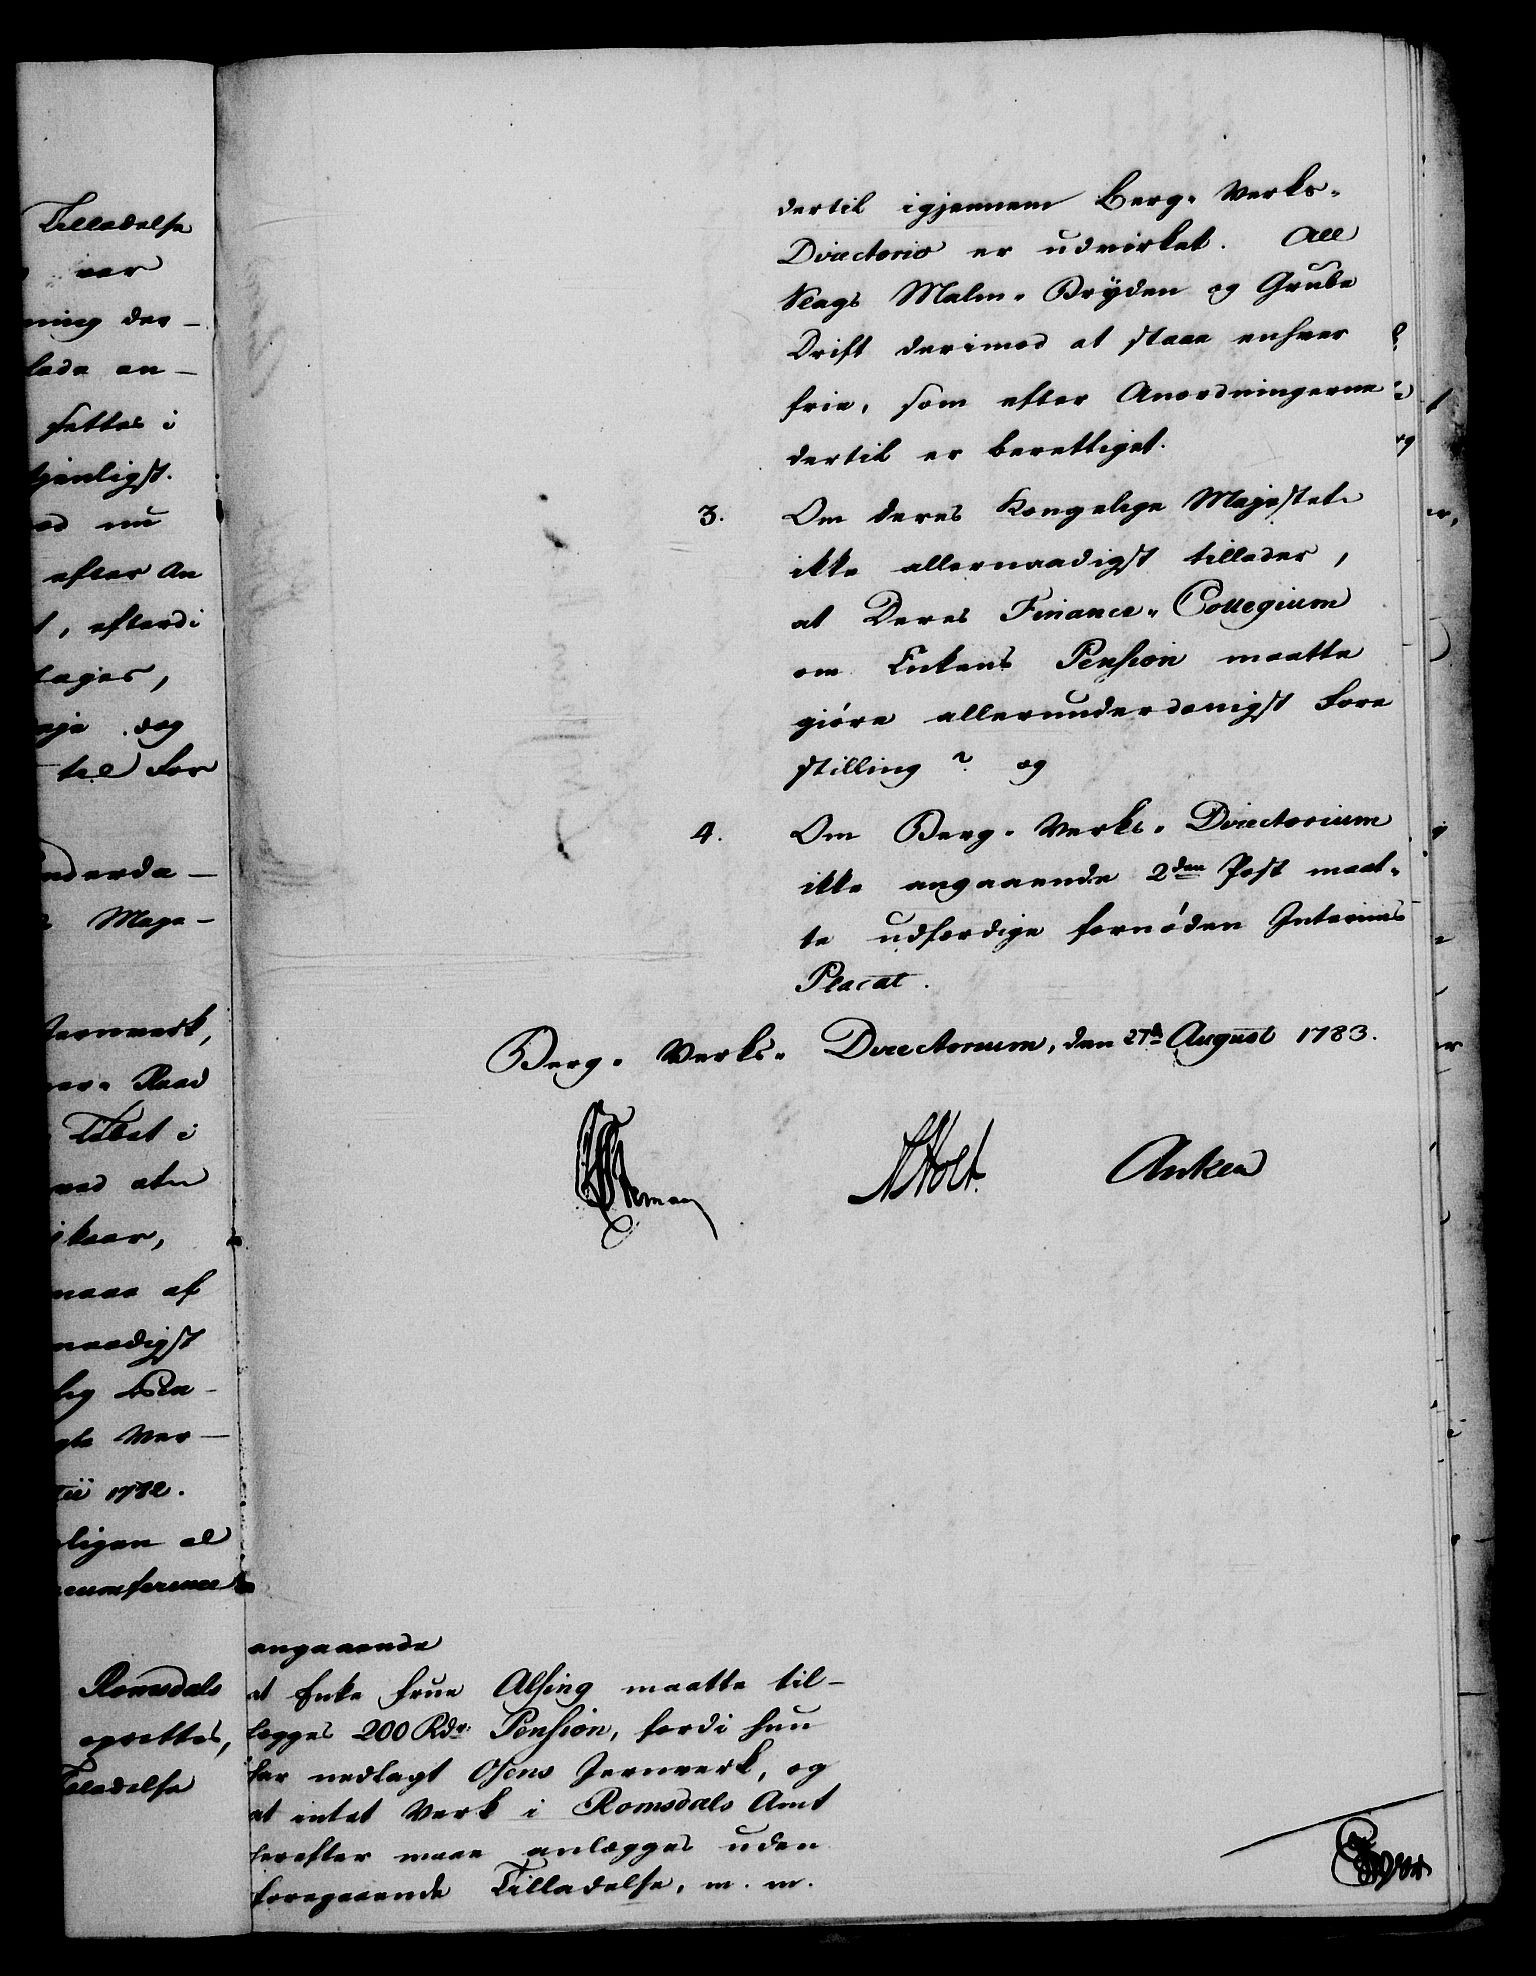 Tilladelse
var
ning der-
lade an-
settes i
tjenligst.
ed nu
efter An
t, efterdi
tages,
eje dog
til for
underda-
Maje-
Jernverk,
Raad
Tibet i
ved at
ikaar,
maae af
naadigst
gte Ver-
tii 1782.
ligen al
cumference
Romsdals
oprettes,
Tiladelse
dertil igjennem Berg-Verks-
Directorio er udvirket. All
Slags Malm-Brÿden og Grube
Drift derimod at staae enhver
frie, som efter Anordningerne
dertil er berettiget.
3. Om deres Kongelige Majestet
ikke allernaadigst tillader,
at Deres Finance-Collegium
om Enkens Pension maatte
giøre allerunderdanigst Fore
stilling? og
4. Om Berg-Verks-Directorium
ikke angaaende 2den Post maat-
te udfærdige fornøden Interims
Placat.
Berg-Verks-Directorium, den 27de August 1783.
Stemann Holt Anker
angaaende
at Enke Frue Alsing maatte til-
lægges 200 Rdr. Pension, fordi hun
har nedlagt Osens Jernverk, og
at intet Verk i Romsdals Amt
herefter maae anlægges uden
foregaaende Tilladelse, m. m.